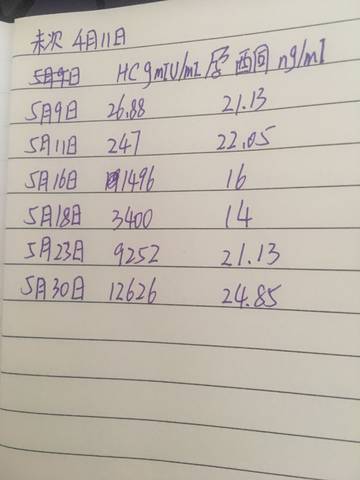 末次 4月11日
5月9日 HCgmIU/ml 孕酉同 ng/ml
5月9日 26.88 21.13
5月11日 247 22.05
5月16日 1496 16
5月18日 3400 14
5月23日 9252 21.13
5月30日 12626 24.85